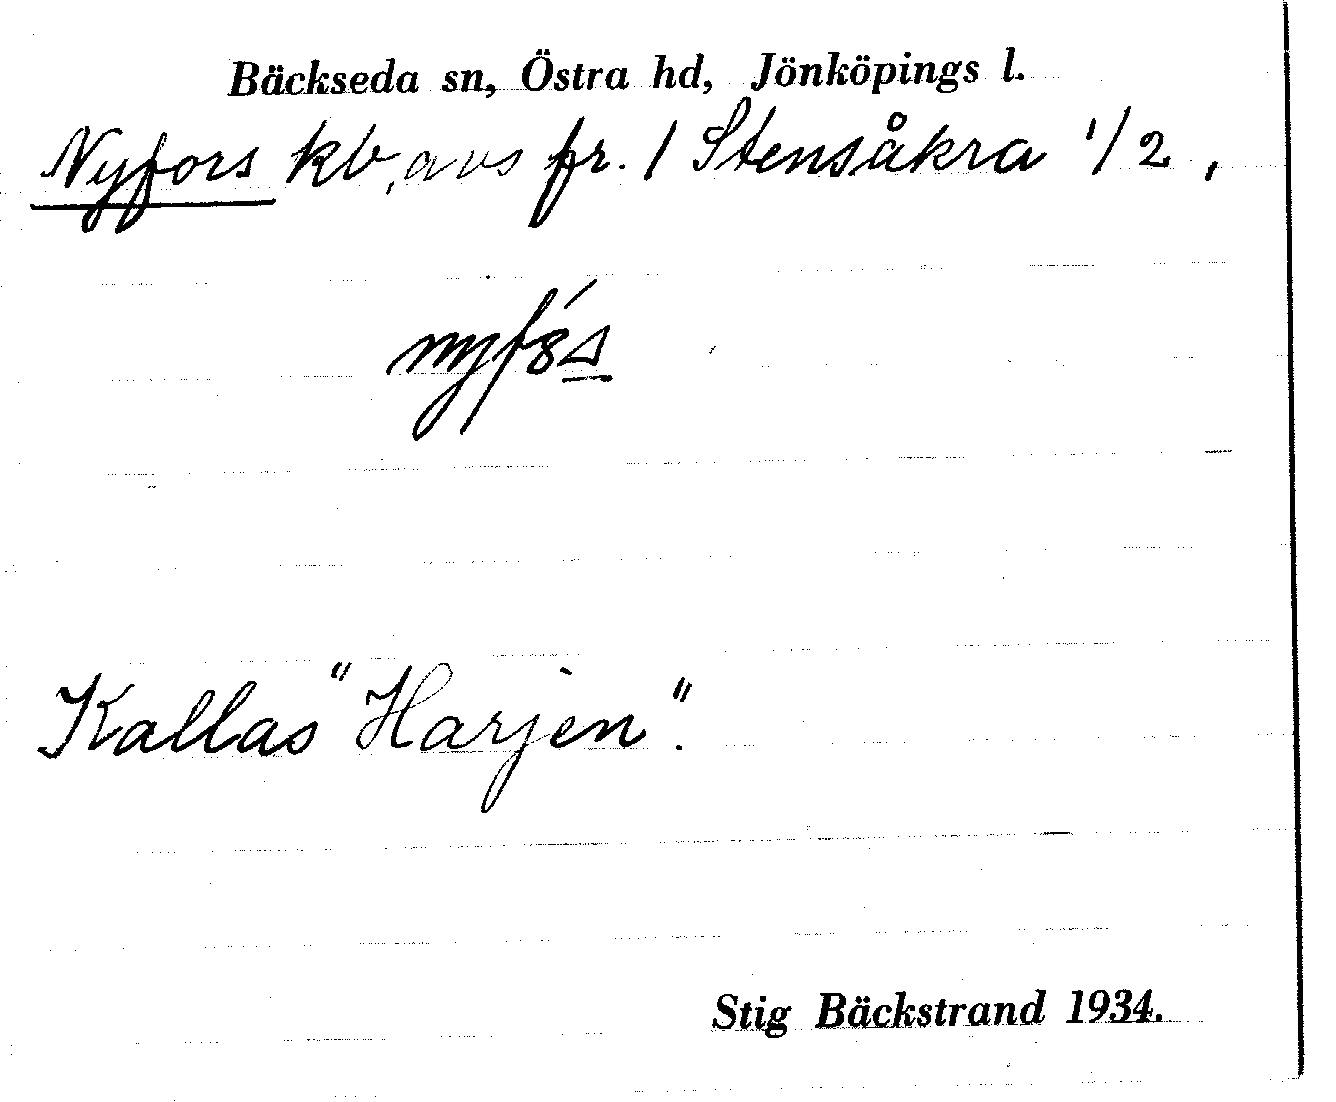 Bäckseda sn, Östra hd, Jönköpings l.
Nyfors kb, avs fr. 1 Stensåkra 1/2,
Kallas "Harjen".
Stig Bäckstrand 1934.